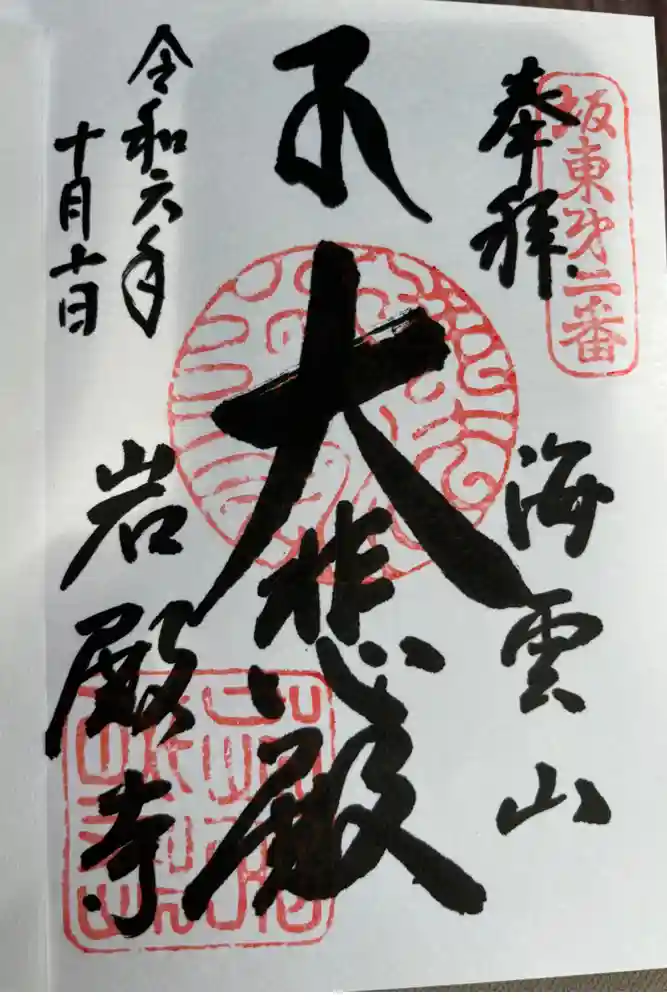 坂東㐧二番
奉拝
海雲山
大悲殿
令和六年
十月十一日
岩殿寺